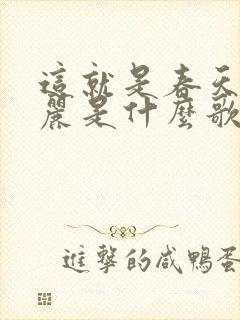 這就是春天
麗是什麼歌
進擊的咸鴨蛋